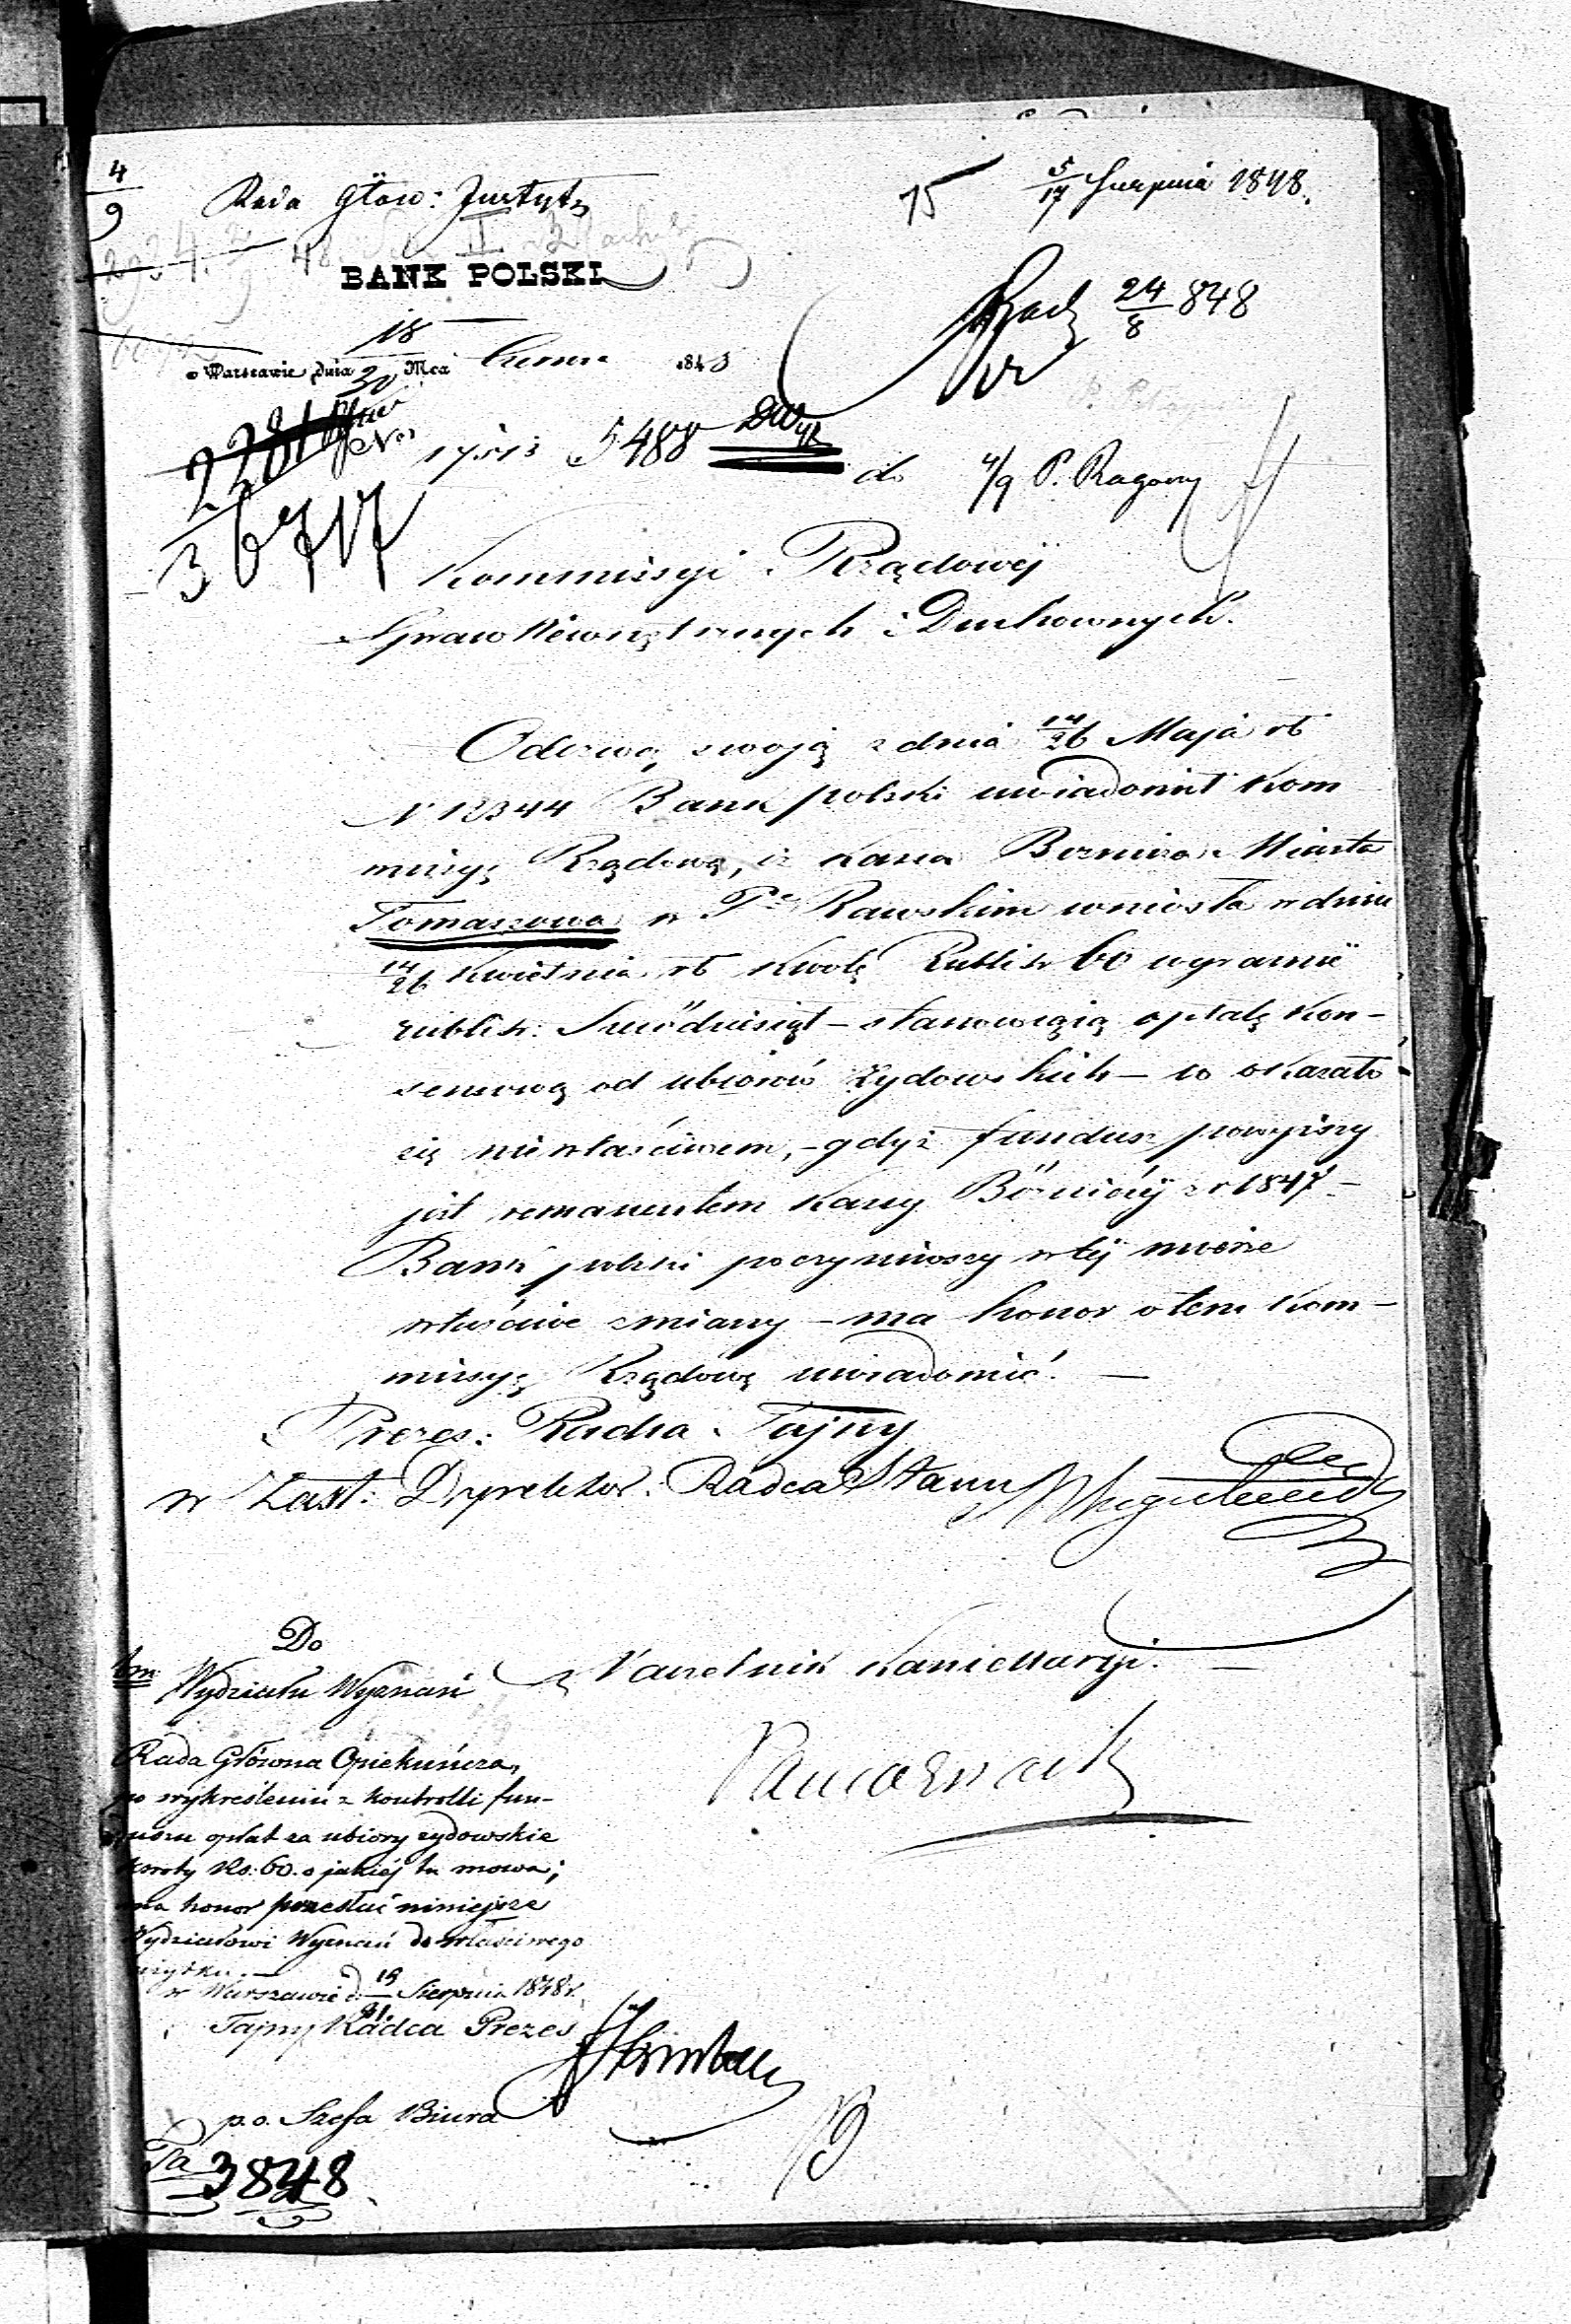 4/9
Rada Głow: Instyt:
75 5/17 Sierpnia 1848.
BANK POLSKI
24/8 848
w Warszawie dnia 18/30 Mca 184
17513 5488
36717
do
4/9 P.
Kommissyi Rządowéj
Spraw Wewnętrznych i Duchownych.
Odezwą swoją z dnia 14/26 Maja rb
N 12344 Bank polski uwiadomił Kom
missyę Rządową, iż Kassa Bożnicza Miasta
Tomaszowa w Pcie Rawskim wniosła w dniu
14/26 Kwietnia rb Kwotę Rubli sr 60 wyraźnie
rubli sr: Sześćdziesiąt – stanowiącą opłatę Kon-
sensową od ubiorów żydowskich – co okazało
się niewłaściwem, – gdyż fundusz powyższy
jest remanentem Kassy Bóżniczéj z r 1847 –
Bank polski poczyniwszy w téj mierze
właściwe zmiany – ma honor o tem Kom-
missyę Rządową uwiadomić. —
Prezes: Radca Tajny
w Zast: Dyrektor: Radca Stanu
Naczelnik Kancellaryi. —
Do
Wydziału Wyznań
Rada Główna Opiekuńcza,
po wykreśleniu z kontrolli fun-
duszu opłat za ubiory żydowskie
kwoty Rs: 60. o jakiéj tu mowa;
ma honor przesłać niniejsze
Wydziałowi Wyznań do właściwego
użytku. —
w Warszawie d. 19/31 Sierpnia 1848 r.
Tajny Radca Prezes
p.o. Szefa Biura
3848